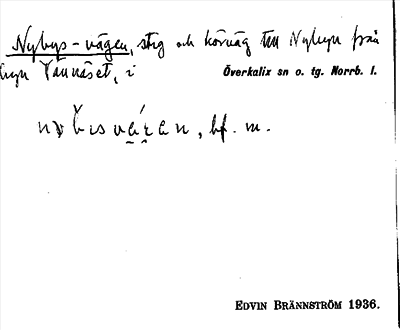 Nybys-vägen, stig och körväg till Nybyn från
byn Tännäset, i
Överkalix sn o. tg. Norrb. l.
bf. m.
EDVIN BRÄNNSTRÖM 1936.